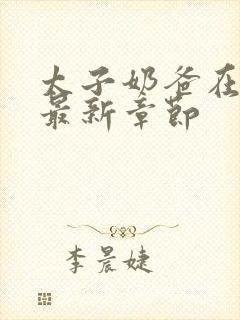 太子奶爸在
最新章节
李晨婕